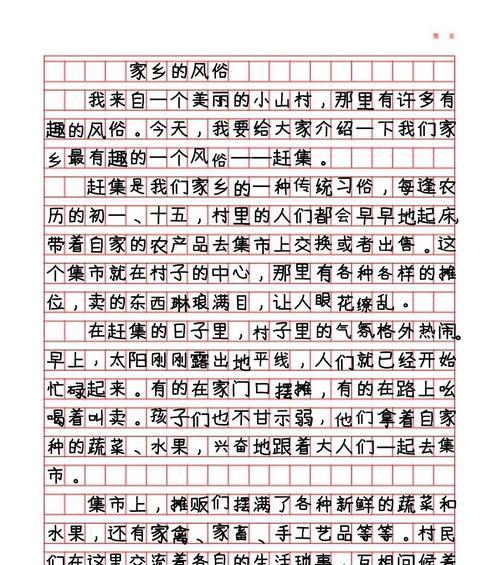 家乡的风俗
我来自一个美丽的小山村，那里有许多有
趣的风俗。今天，我要给大家介绍一下我们家
乡最有趣的一个风俗——赶集。
赶集是我们家乡的一种传统习俗，每逢农
历的初一、十五，村里的人们都会早早地起床，
带着自家的农产品去集市上交换或者出售。这
个集市就在村子的中心，那里有各种各样的摊
位，卖的东西琳琅满目，让人眼花缭乱。
在赶集的日子里，村子里的气氛格外热闹。
早上，太阳刚刚露出地平线，人们就已经开始
忙碌起来。有的在家门口摆摊，有的在路上吆
喝着叫卖。孩子们也不甘示弱，他们拿着自家
种的蔬菜、水果，兴奋地跟着大人们一起去集
市。
集市上，摊贩们摆满了各种新鲜的蔬菜和
水果，还有家禽、家畜、手工艺品等等。村民
们在这里交流着各自的生活琐事，互相问候着